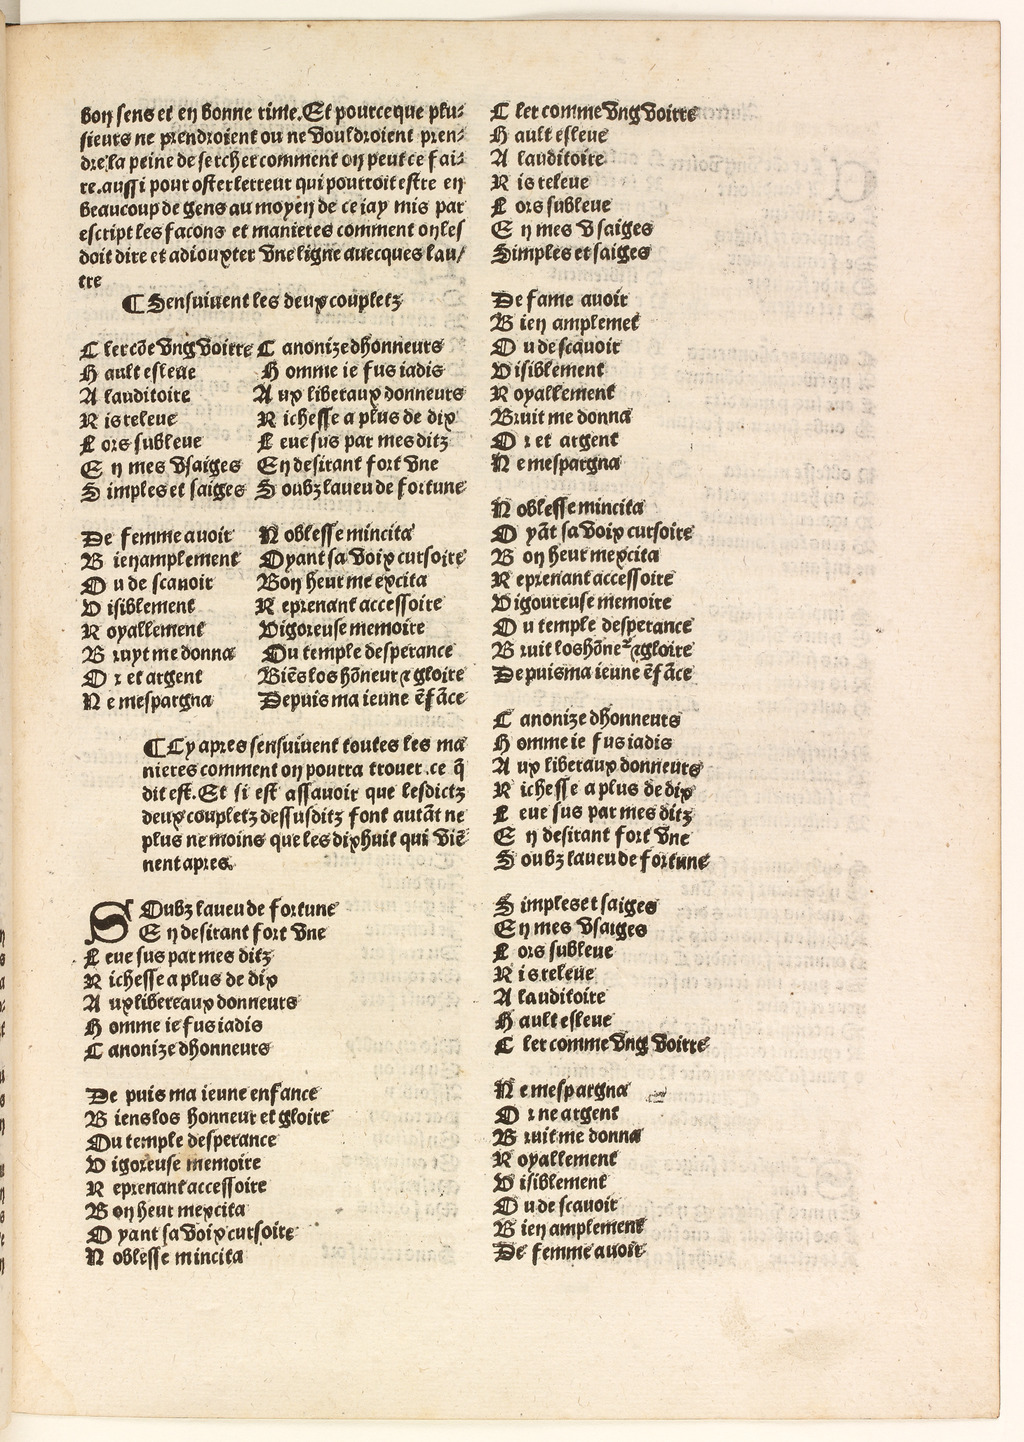 bon sens et en bonne rime. Et pource que plu⸗
sieurs ne prendroient ou ne vouldroient pren⸗
dre la peine de sercher comment on peut ce fai⸗
re. aussi pour oster lerreur qui pourroit estre en
beaucoup de gens au moyen de ce iay mis par
escript les facons et manieres comment on les
doit dire et adiouxter vne ligne auecques lau/
tre
¶ Sensuiuent les deux coupletz
Cler cõe vng voirre
Hault esleue
A lauditoire
Ris releue
Lors subleue
En mes vsaiges
Simples et saiges
Canonize dhonneurs
Homme ie fus iadis
Aux liberaux donneurs
Richesse a plus de dix
Leue sus par mes ditz
En desirant fort vne
Soubz laueu de fortune
De femme auoir
Bien amplement
Ou de scauoir
Visiblement
Royallement
Bruyt me donna
Or et argent
Ne mespargna
Noblesse mincita
Oyant sa voix cursoire
Bon heur me excita
Reprenant accessoire
Vigoreuse memoire
Du temple desperance
Biẽs los hõneur ⁊ gloire
Depuis ma ieune ẽfãce
¶ Cy apres sensuiuent toutes les ma
nieres comment on pourra trouer. ce q̃
dit est. Et si est assauoir que lesdictz
deux coupletz dessusditz font autãt ne
plus ne moins que les dixhuit qui viẽ
nent apres.
SOubz laueu de fortune
En desirant fort vne
Leue sus par mes ditz
Richesse a plus de dix
Aux libereaux donneurs
Homme ie fus iadis
Canonize dhonneurs
De puis ma ieune enfance
Biens los honneur et gloire
Du temple desperance
Vigoreuse memoire
Reprenant accessoire
Bon heur mexcita
Oyant sa voix cursoire
Noblesse mincita
Cler comme vng voirre
Hault esleue
A lauditoire
Ris releue
Lors subleue
En mes vsaiges
Simples et saiges
De fame auoir
Bien amplemet
Ou de scauoir
Visiblement
Royallement
Bruit me donna
Or et argent
Ne mespargna
Noblesse mincita
Oyãt sa voix cursoire
Bon heur mexcita
Reprenant accessoire
Vigoureuse memoire
Du temple desperance
Bruit los hõne² ⁊ gloire
Depuis ma ieune ẽfãce
Canonize dhonneurs
Homme ie fus iadis
Aux liberaux donneurs
Richesse a plus de dix
Leue sus par mes ditz
En desirant fort vne
Soubz laueu de fortune
Simples et saiges
En mes vsaiges
Lors subleue
Ris releue
A lauditoire
Hault esleue
Cler comme vng voirre
Ne mespargna
Or ne argent
Bruit me donna
Royallement
Visiblement
Ou de scauoir
Bien amplement
De femme auoir